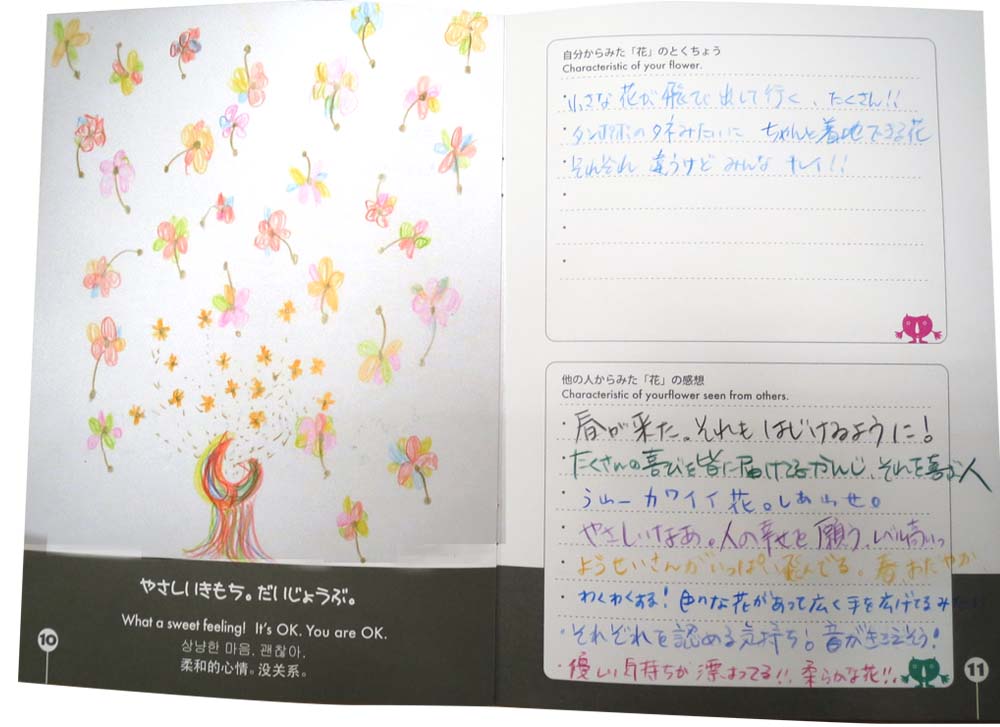 やさしいきもち。だいじょうぶ。
What a sweet feeling! It's OK. You are OK.
상냥한 마음. 괜찮아.
柔和的心情。没关系。
10
自分からみた「花」のとくちょう
Characteristic of your flower.
・小さな花が飛び出して行く、たくさん!!
・タンポポのタネみたいに ちゃんと着地できる花
・それぞれ 違うけど みんな キレイ!!
他の人からみた「花」の感想
Characteristic of yourflower seen from others.
・春が来た。それも はじけるように!
・たくさんの喜びを皆に届けてるかんじ、それを喜ぶ人
・うわー カワイイ 花。しあわせ。
・やさしいなあ。人の幸せを 願う、レベル高いっ
・ようせいさんがいっぱい飛んでる。春 おだやか
・わくわくする! 色々な花があって広く手を広げてるみたい
・それぞれを認める気持ち! 音がきこえそう!
・優しい気持ちが 漂ってる!! 柔らかな花!!
11